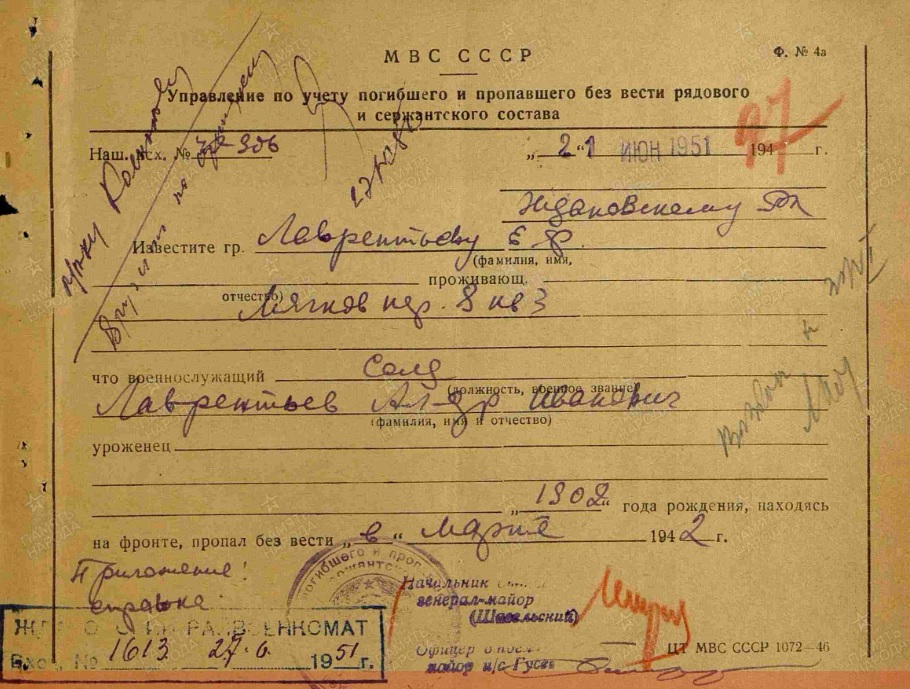 МВС СССР
Ф. № 4а
Управление по учету погибшего и пропавшего без вести рядового
и сержантского состава
Наш. исх. №
„21“ ИЮН 1951 194 г.
97
Ждановскому РВК
Известите гр. Лаврентьеву Е Ф.
(фамилия, имя,
проживающ.
отчество)
Мягков пер. 8 кв 3
что военнослужащий Солд
(должность, военное звание)
Лаврентьев Ал-др Иванович
(фамилия, имя и отчество)
уроженец
„1902“ года рождения, находясь
на фронте, пропал без вести „в“ марте 1942 г.
Приложение:
справка
Начальник
генерал-майор
(Шавельский)
Офицер
майор и/с Гусев
ВОЕНКОМАТ
Вхо. № 1613 27.6. 1951 г.
ЦТ МВС СССР 1072—46